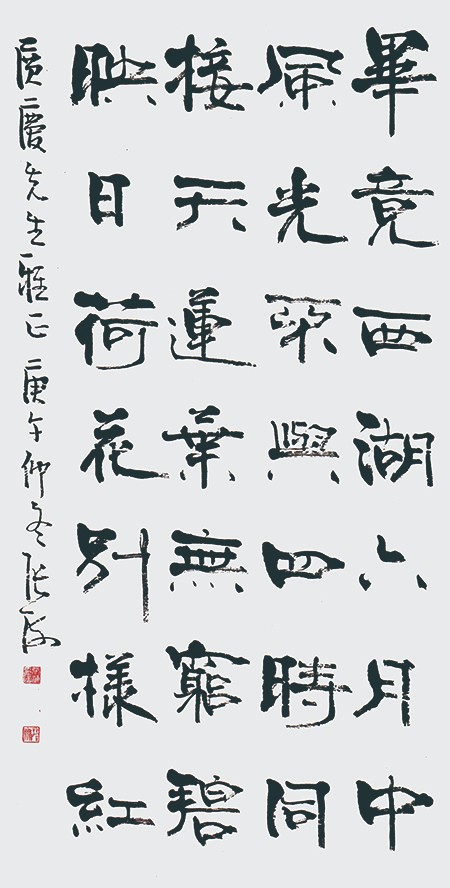 畢竟西湖六月中
風光不與四時同
接天蓮葉無窮碧
映日荷花別樣紅
慶先生雅正庚午仲冬張